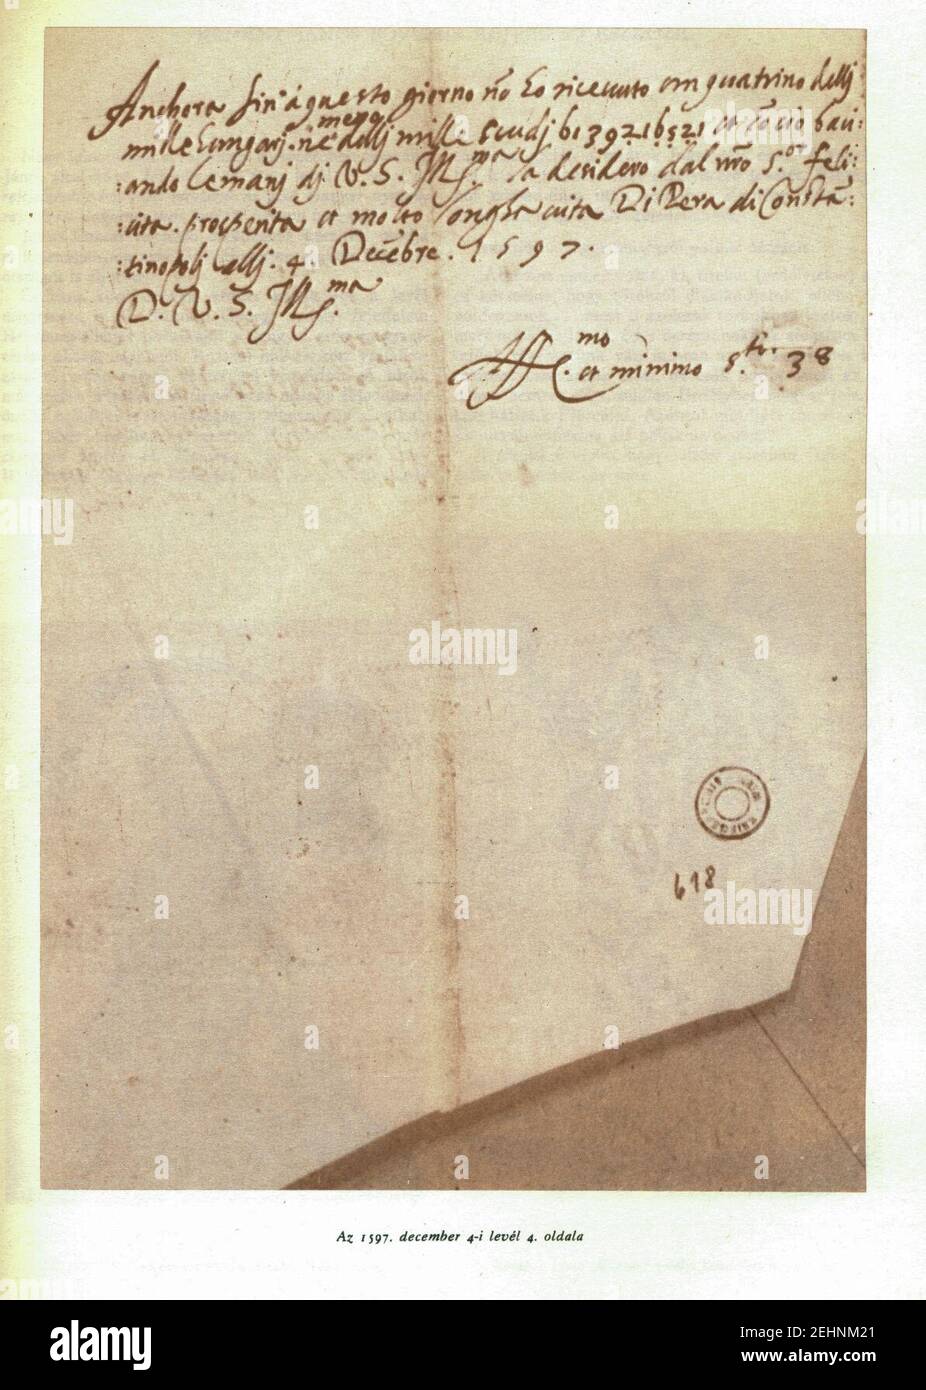 Anchora fin' à questo giorno nõ ho riceuuto un quatrino delli
mezz
mille hungarj. ne dellj mille scudj 6139216521 et cõ cio baci:
:ando le manj dj V. S. Ill.ma la desidero dal nr̃o S.or feli:
:cita. prosperita et molto longha uita Di Pera di Constã:
:tinopolj allj. 4. Decẽbre. 1597.
D. V. S. Ill.ma
mo
et minimo s.tor. 38
618
Az 1597. december 4-i levél 4. oldala
alamy
Image ID: 2EHNM21
www.alamy.com